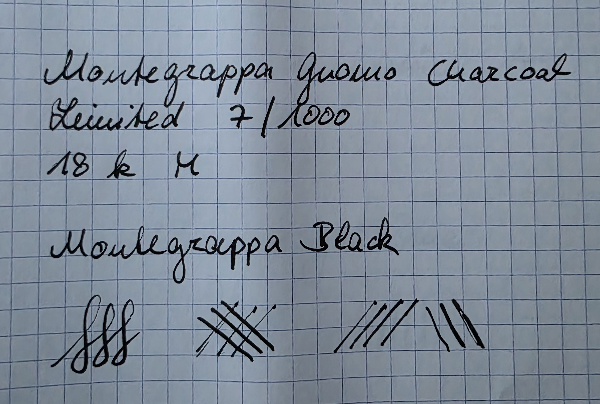 Montegrappa Quomo Charcoal
Limited 7/1000
18 k M
Montegrappa Black